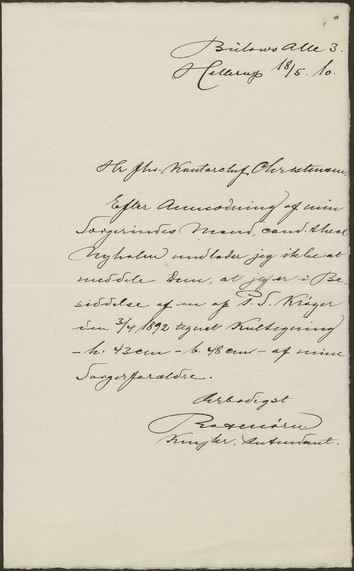 Bülows Alle 3.
Hellerup 18/5. 10.
Hr fhv. Kontorchef Christensen.
Efter Anmodning af min
Svigerindes Mand, cand. theol
Nyholm undlader jeg ikke at
meddele Dem, at jeg er i Be-
siddelse af en af P. S. Krøyer
den 3/4 1892 tegnet Kultegning
- h. 43 cm - b. 48 cm - af mine
Svigerforældre.
Ærbødigst
Intendant.